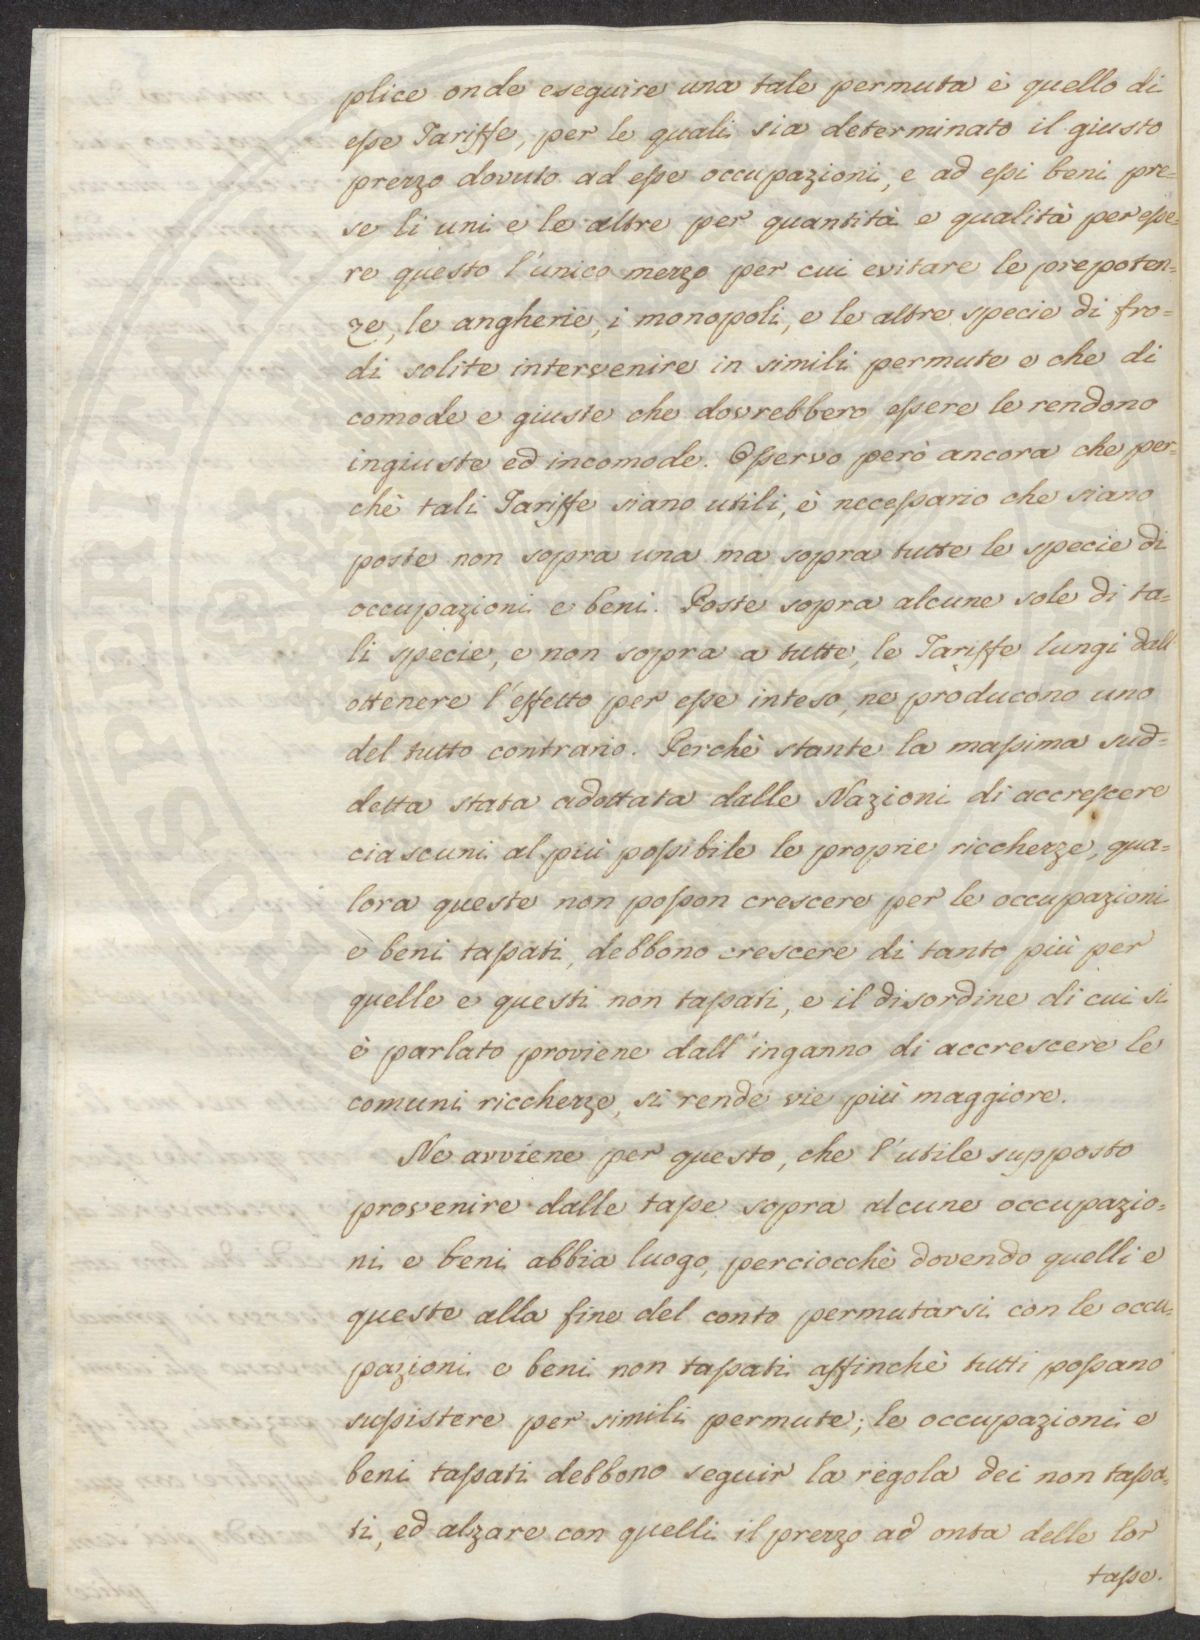 plice onde eseguire una tale permuta è quello di
esse Tariffe, per le quali sia determinato il giusto
prezzo dovuto ad esse occupazioni, e ad essi beni pre=
se li uni e le altre per quantità e qualità per esse=
re questo l'unico mezzo per cui evitare le prepoten=
ze, le angherie, i monopoli, e le altre specie di fro=
di solite intervenire in simili permute e che di
comode e giuste che dovrebbero essere le rendono
ingiuste ed incomode. Osservo però ancora che per=
chè tali Tariffe siano utili, è necessario che siano
poste non sopra una ma sopra tutte le specie di
occupazioni e beni. Poste sopra alcune sole di ta=
li specie, e non sopra a tutte, le Tariffe lungi dall
ottenere l'effetto per esse inteso, ne producono uno
del tutto contrario. Perchè stante la massima sud=
detta stata adottata dalle Nazioni di accrescere
ciascuni al più possibile le proprie ricchezze, qua=
lora queste non posson crescere per le occupazioni
e beni tassati, debbono crescere di tanto più per
quelle e questi non tassati, e il disordine di cui si
è parlato proviene dall'inganno di accrescere le
comuni ricchezze, si rende vie più maggiore.
Ne avviene per questo, che l'utile supposto
provenire dalle tasse sopra alcune occupazio=
ni e beni abbia luogo, perciocchè dovendo quelli e
queste alla fine del conto permutarsi con le occu=
pazioni e beni non tassati affinchè tutti possano
sussistere per simili permute; le occupazioni e
beni tassati debbono seguir la regola dei non tassa=
ti, ed alzare con quelli il prezzo ad onta delle lor
tasse.